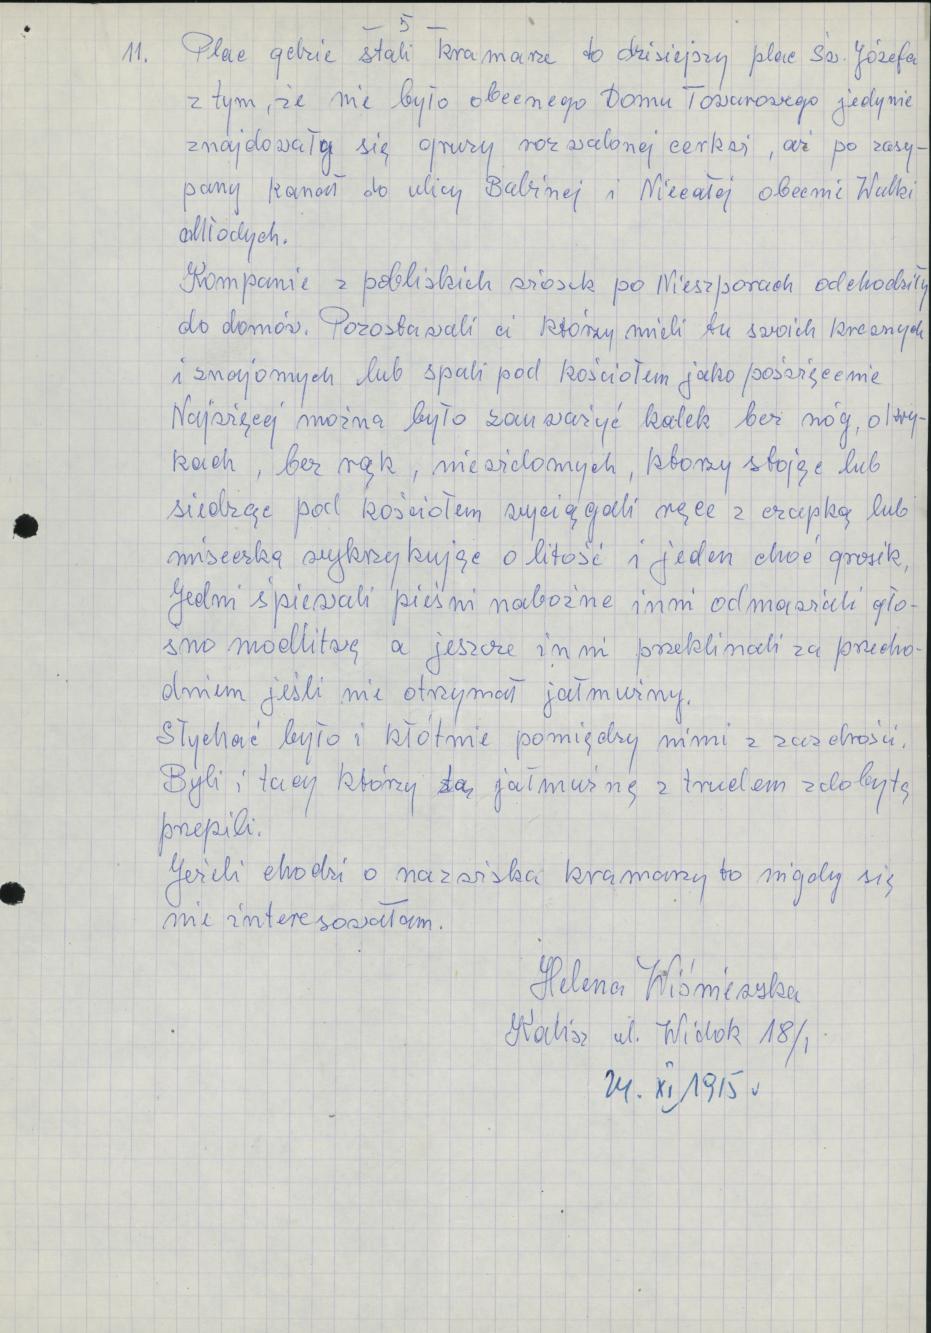 – 5 –
11. Plac gdzie stali kramarze to dzisiejszy plac Św. Józefa
z tym, że nie było obecnego Domu Towarowego jedynie
znajdowały się gruzy rozwalonej cerkwi, aż po zasy-
pany kanał do ulicy Babinej i Niecałej obecnie Walki
Młodych.
Kompanie z pobliskich wiosek po Nieszporach odchodziły
do domów. Pozostawali ci którzy mieli tu swoich krewnych
i znajomych lub spali pod kościołem jako poświęcenie
Najwięcej można było zauważyć kalek bez nóg, o
kach, bez rąk, niewidomych, którzy stojąc lub
siedząc pod kościołem wyciągali ręce z czapką lub
miseczką wykrzykując o litość i jeden choć grosik,
Jedni śpiewali pieśni nabożne inni odmawiali gło-
śno modlitwę a jeszcze inni przeklinali za przecho-
dniem jeśli nie otrzymał jałmużny.
Słychać było i kłótnie pomiędzy nimi z zazdrości.
Byli i tacy którzy tą jałmużnę z trudem zdobytą
przepili.
Jeżeli chodzi o nazwiska kramarzy to nigdy się
nie interesowałam.
Helena Wiśniewska
Kalisz ul. Widok 18/1
24. XI 1915